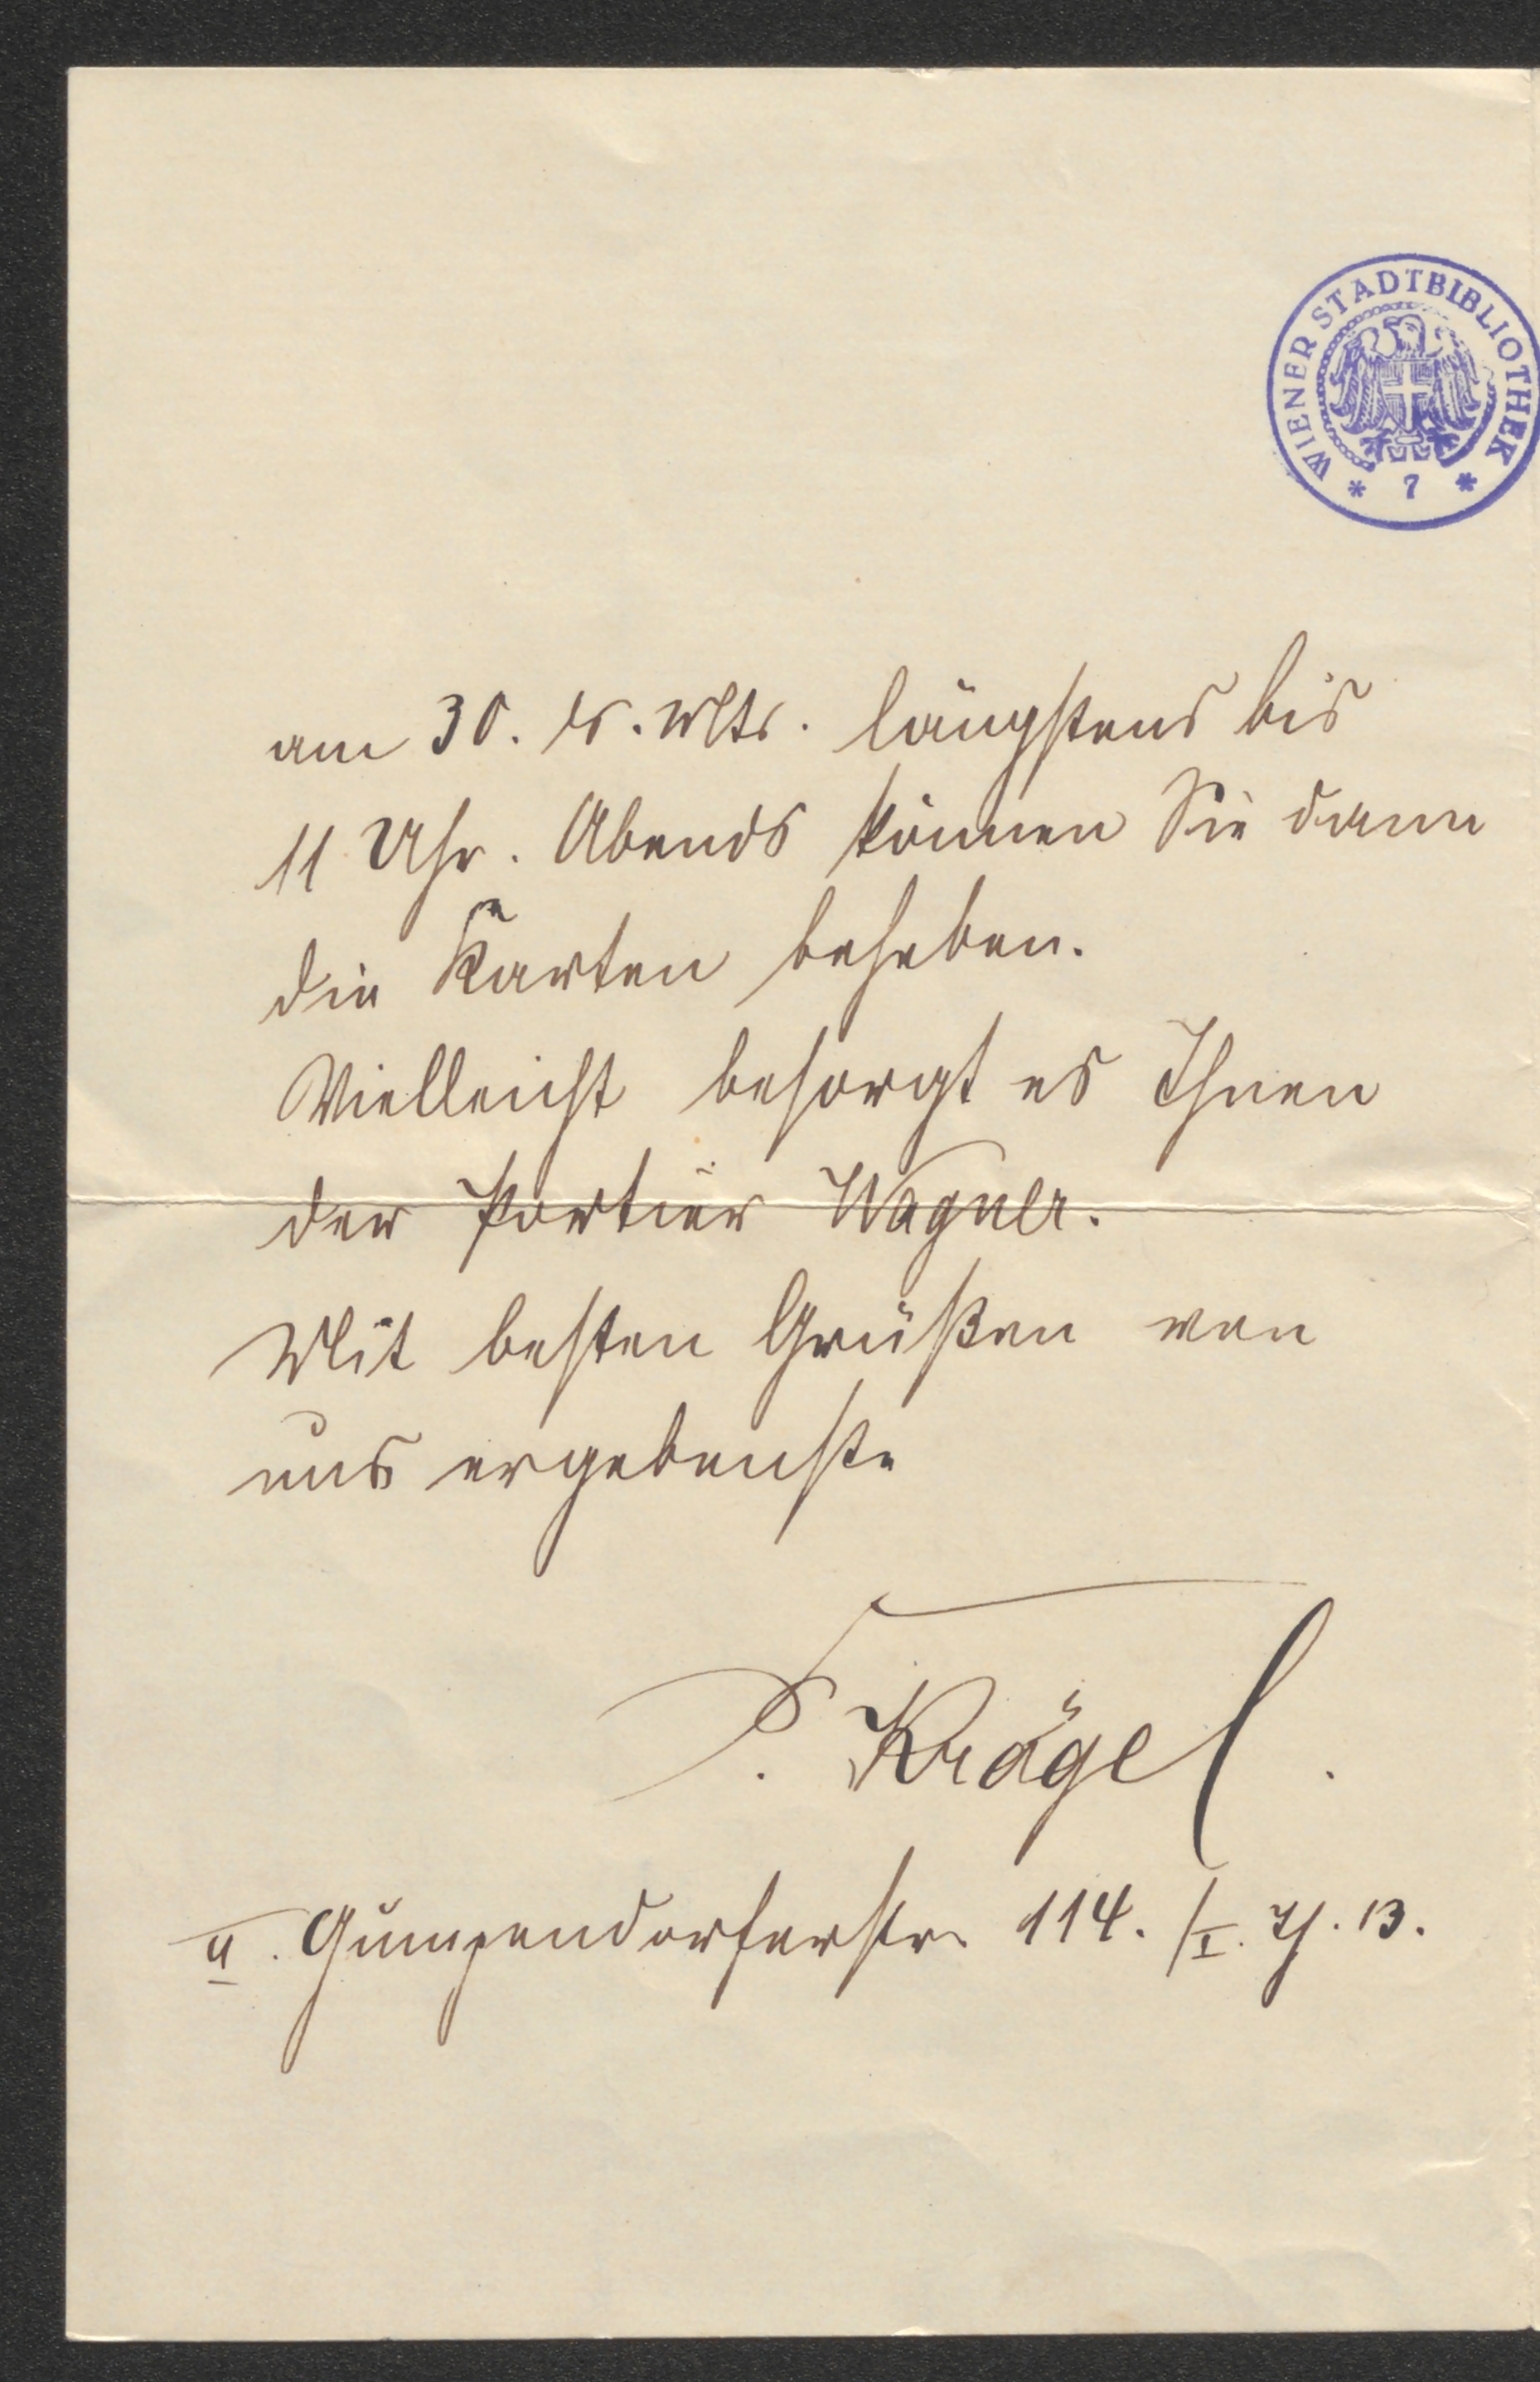 WIENER STADTBIBLIOTHEK
* 7 *
am 30. ds. Mts. längstens bis
11 Uhr. Abends können Sie dann
die Karten beheben.
Vielleicht besorgt es Ihnen
der Portier Wagner.
Mit besten Grüßen von
uns ergebenste
Krägel.
Gumpendorferstr. 114. /I. Th. 13.